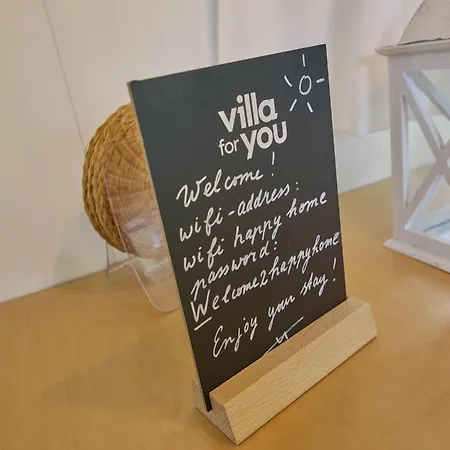 villa
for YOU
Welcome!
wifi-address:
wifi happy home
password:
Welcome2happyhome
Enjoy your stay!